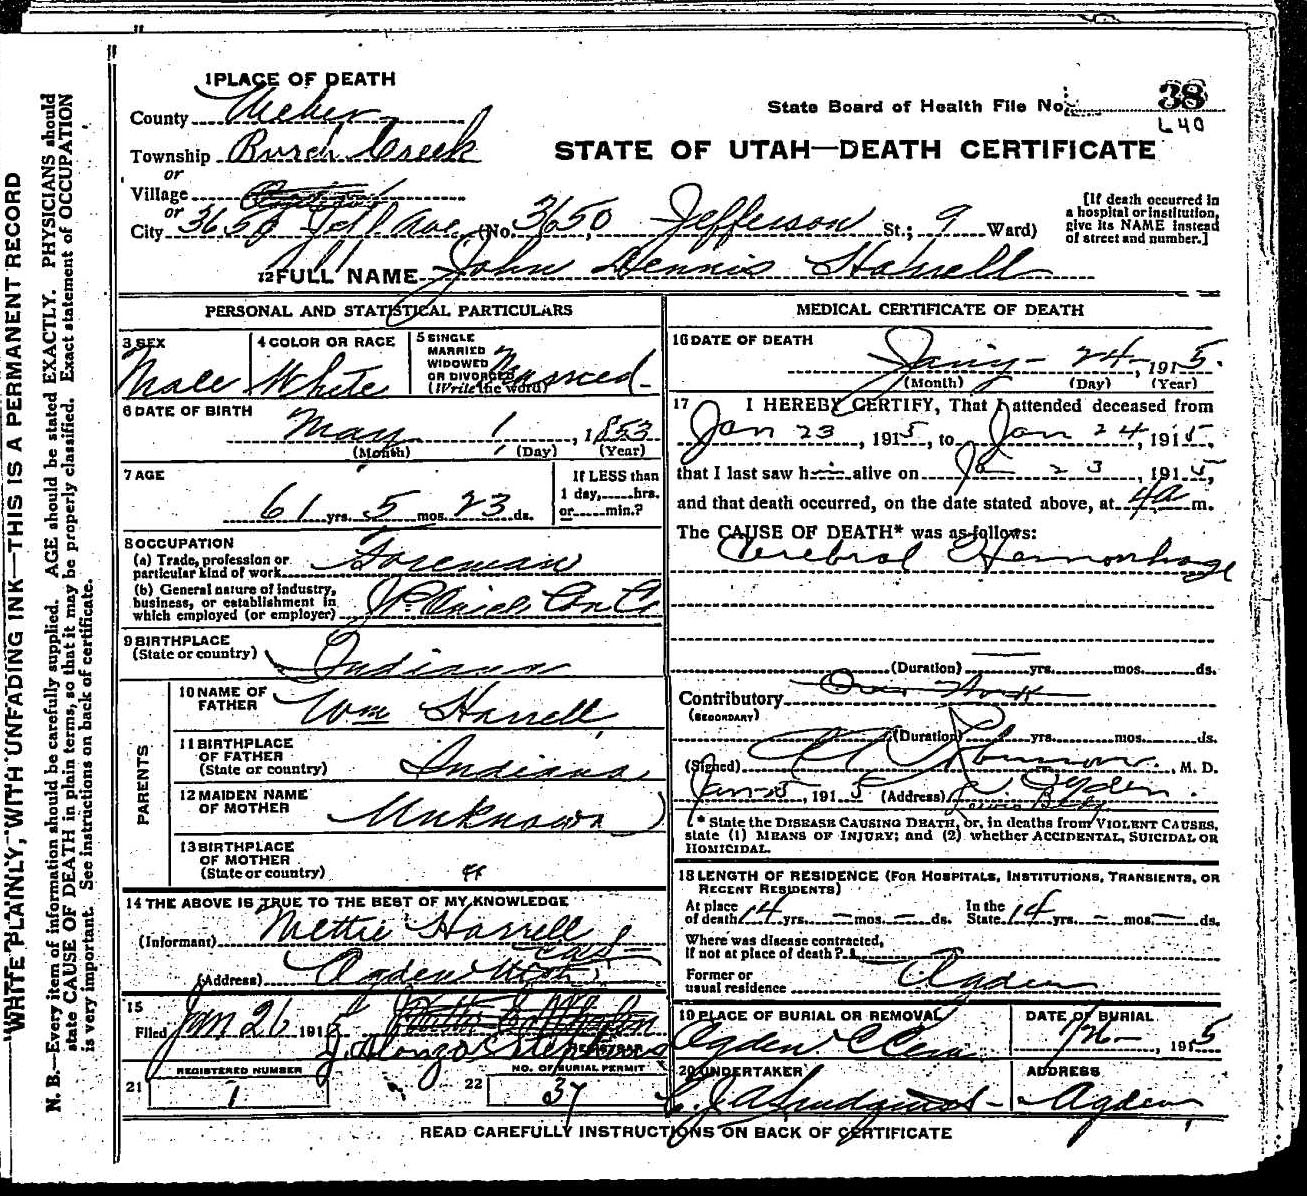 WRITE PLAINLY, WITH UNFADING INK—THIS IS A PERMANENT RECORD
N. B.—Every item of information should be carefully supplied. AGE should be stated EXACTLY. PHYSICIANS should
state CAUSE OF DEATH in plain terms, so that it may be properly classified. Exact statement of OCCUPATION
is very important. See instructions on back of certificate.
1 PLACE OF DEATH
County Weber
State Board of Health File No. 38
L40
Township Burch Creek
or
STATE OF UTAH—DEATH CERTIFICATE
Village
or
City 3650 Jeff Ave (No. 3650 Jefferson St.; 9 Ward)
[If death occurred in
a hospital or institution,
give its NAME instead
of street and number.]
2 FULL NAME John Dennis Harrell
PERSONAL AND STATISTICAL PARTICULARS
3 SEX Male
4 COLOR OR RACE White
5 SINGLE
MARRIED
WIDOWED
OR DIVORCED
(Write the word) Married
6 DATE OF BIRTH
May 1, 1853
(Month) (Day) (Year)
7 AGE
61 yrs. 5 mos. 23 ds.
If LESS than
1 day,......hrs.
or......min.?
8 OCCUPATION
(a) Trade, profession or
particular kind of work Foreman
(b) General nature of industry,
business, or establishment in
which employed (or employer) Con Co
9 BIRTHPLACE
(State or country) Indiana
PARENTS
10 NAME OF
FATHER Wm Harrell
11 BIRTHPLACE
OF FATHER
(State or country) Indiana
12 MAIDEN NAME
OF MOTHER Unknown
13 BIRTHPLACE
OF MOTHER
(State or country) "
14 THE ABOVE IS TRUE TO THE BEST OF MY KNOWLEDGE
(Informant) Nettie Harrell
(Address) Ogden Utah
15
Filed Jan 26 1915 J. Alonzo Stephens
REGISTRAR
REGISTERED NUMBER
21 1
NO. OF BURIAL PERMIT
22 37
MEDICAL CERTIFICATE OF DEATH
16 DATE OF DEATH
Jany 24, 1915.
(Month) (Day) (Year)
17 I HEREBY CERTIFY, That I attended deceased from
Jan 23, 1915, to Jan 24, 1915,
that I last saw him alive on Jan 23, 1915,
and that death occurred, on the date stated above, at 4a m.
The CAUSE OF DEATH* was as follows:
Cerebral Hemorrhage
(Duration)......yrs.......mos.......ds.
Contributory Over Work
(SECONDARY)
(Duration)......yrs.......mos.......ds.
(Signed) Robinson, M. D.
Jan 25, 1915 (Address) Ogden.
* State the DISEASE CAUSING DEATH, or, in deaths from VIOLENT CAUSES,
state (1) MEANS OF INJURY; and (2) whether ACCIDENTAL, SUICIDAL OR
HOMICIDAL.
18 LENGTH OF RESIDENCE (FOR HOSPITALS, INSTITUTIONS, TRANSIENTS, OR
RECENT RESIDENTS)
At place
of death 14 yrs. — mos. — ds.
In the
State 14 yrs. — mos. — ds.
Where was disease contracted,
If not at place of death?
Former or
usual residence Ogden
19 PLACE OF BURIAL OR REMOVAL
Ogden C Cem
DATE OF BURIAL
1/26, 1915
20 UNDERTAKER
ADDRESS
Ogden
READ CAREFULLY INSTRUCTIONS ON BACK OF CERTIFICATE